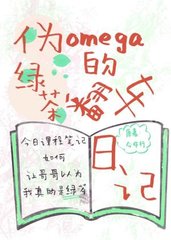 伪omega
的
绿茶翻车
日记
今日课程笔记
如何
让哥哥以为
我真的是绿茶